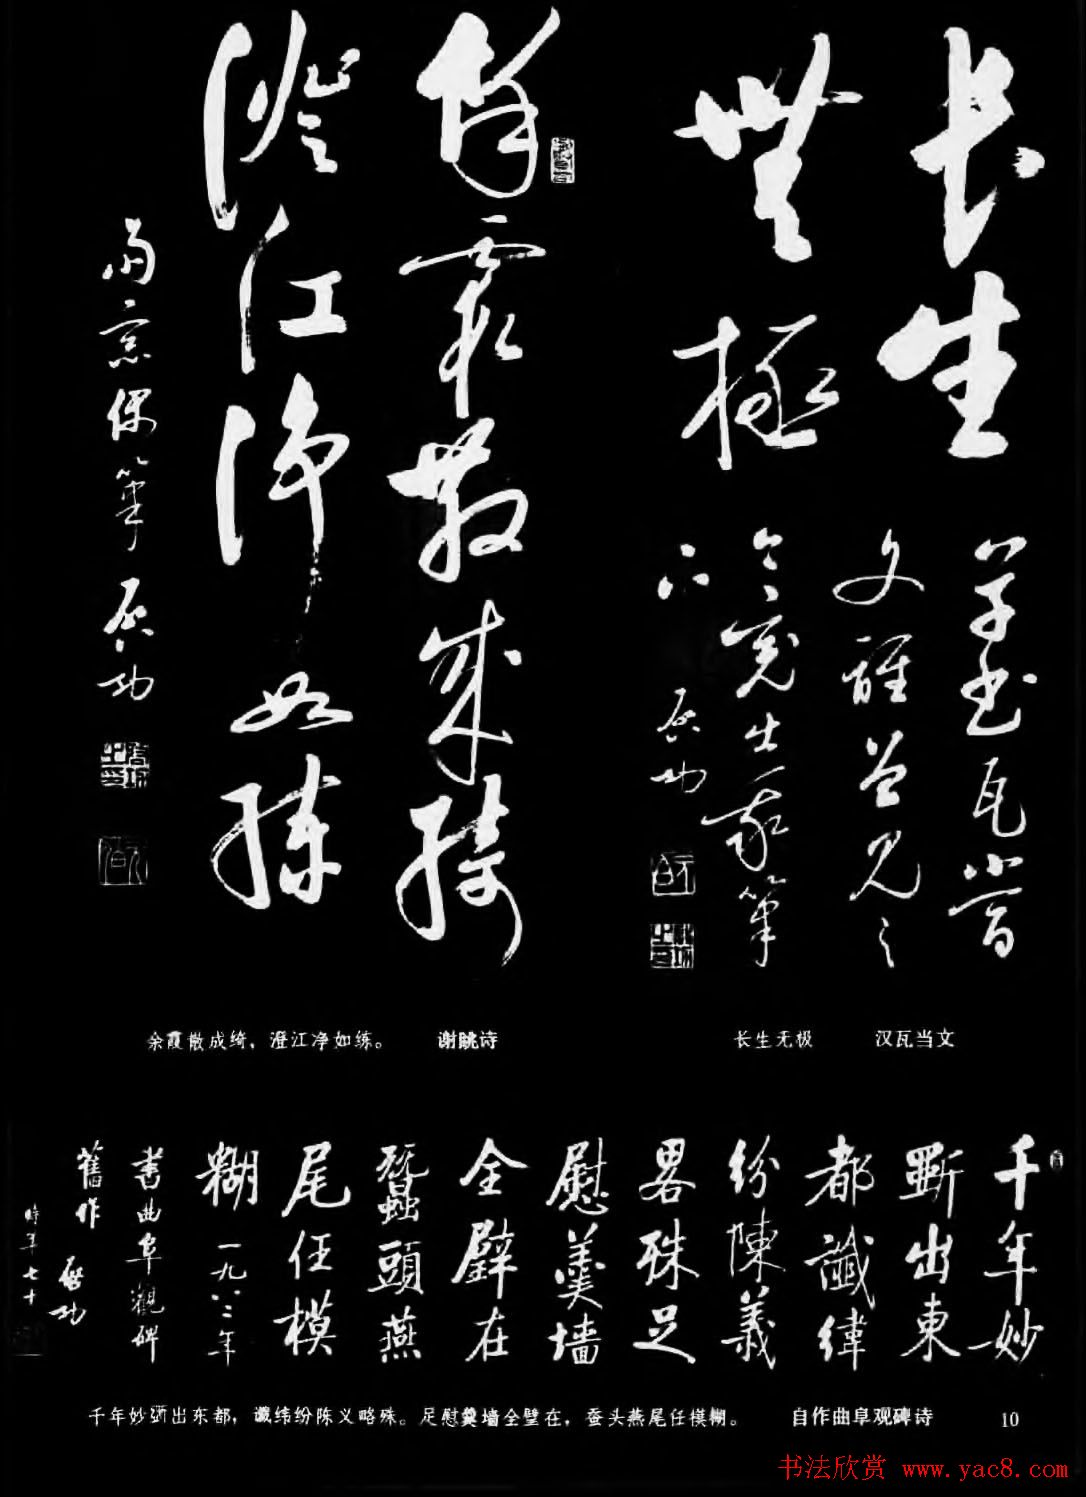 长生
無極
草书瓦當
文誰曾見之
今竟出我筆
下 启功
餘霞散成綺
澄江净如練
窗偶筆 启功
余霞散成绮，澄江净如练。 谢眺诗
长生无极 汉瓦当文
千年妙
斲出東
都讖緯
紛陳義
畧殊足
慰羹墙
全璧在
蠶頭燕
尾任模
糊 一九八二年
書曲阜觀碑
舊作 启功
時年七十
千年妙斲出东都，谶纬纷陈义略殊。足慰羹墙全璧在，蚕头燕尾任模糊。 自作曲阜观碑诗 10
书法欣赏 www.yac8.com